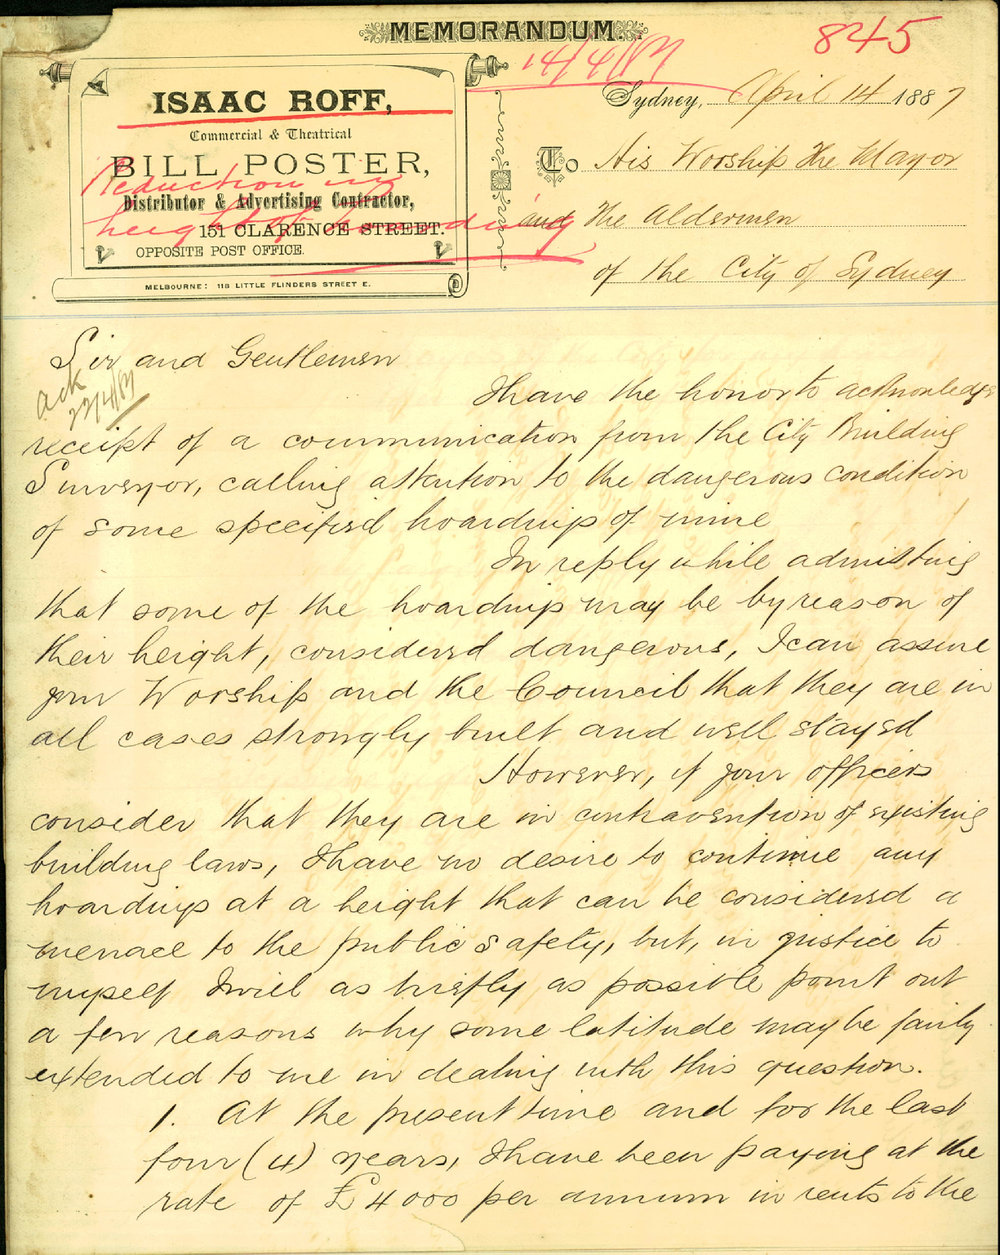 MEMORANDUM.
845
14/4/87
ISAAC ROFF,
Commercial & Theatrical
BILL POSTER,
Distributor & Advertising Contractor,
151 CLARENCE STREET.
OPPOSITE POST OFFICE.
MELBOURNE: 118 LITTLE FLINDERS STREET E.
Reduction in
height of hoarding
Sydney, April 14 1887
To His Worship the Mayor
and the Aldermen
of the City of Sydney
Sir and Gentlemen
Ack
22/4/87
I have the honor to acknowledge
receipt of a communication from the City Building
Surveyor, calling attention to the dangerous condition
of some specified hoardings of mine
In reply while admitting
that some of the hoardings may be by reason of
their height, considered dangerous, I can assure
your Worship and the Council that they are in
all cases strongly built and well stayed
However, if your officers
consider that they are in contravention of existing
building laws, I have no desire to continue any
hoardings at a height that can be considered a
menace to the public safety, but, in justice to
myself I will as briefly as possible point out
a few reasons why some latitude may be fairly
extended to me in dealing with this question.
1. At the present time and for the last
four (4) years, I have been paying at the
rate of £4000 per annum in rents to the